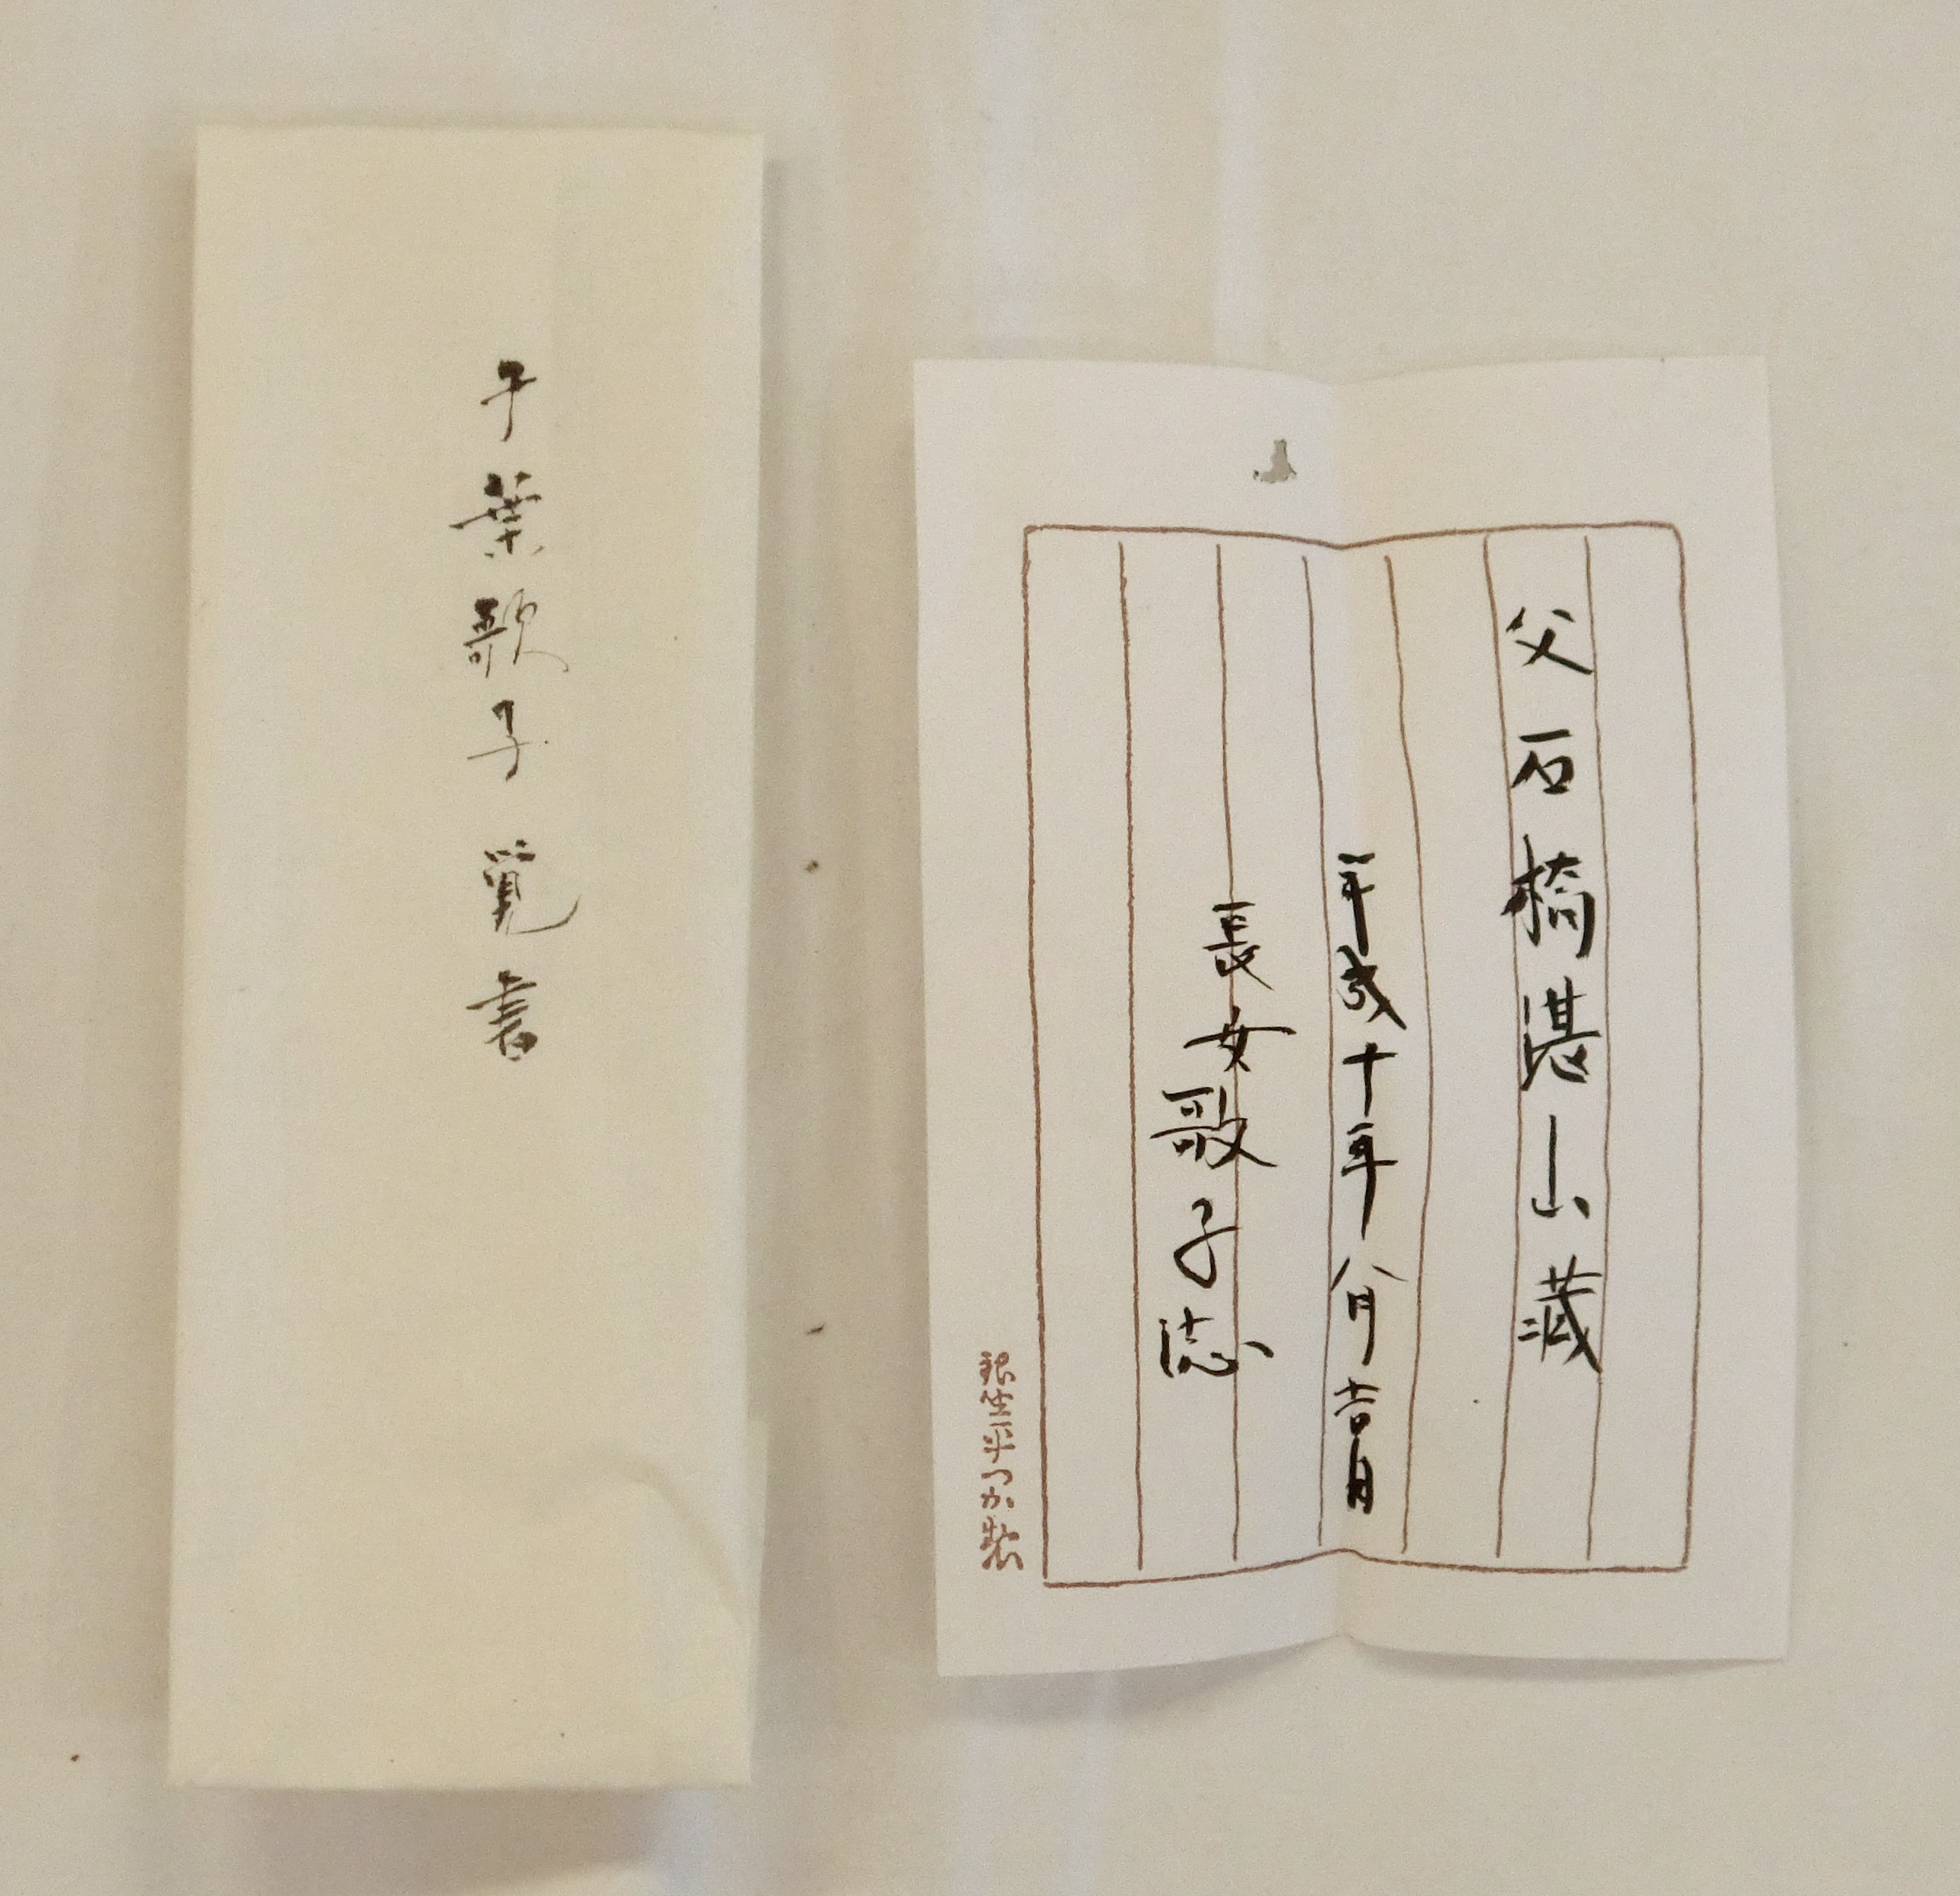 千葉歌子 覚書
父石橋湛山蔵
平成十年八月吉日
長女歌子誌
銀座平つか製